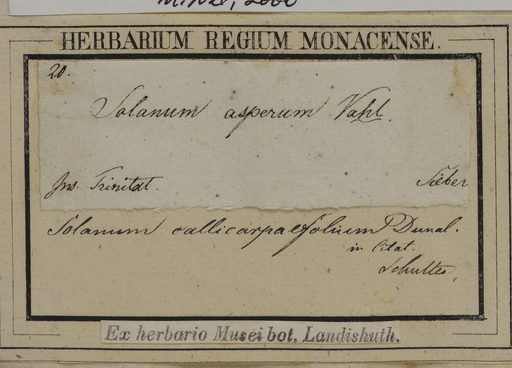 HERBARIUM REGIUM MONACENSE.
20.
Solanum asperum Vahl.
Ins. Trinitat. Sieber
Solanum callicarpaefolium P Dunal.
in litat.
Schultes.
Ex herbario Musei bot. Landishuth.